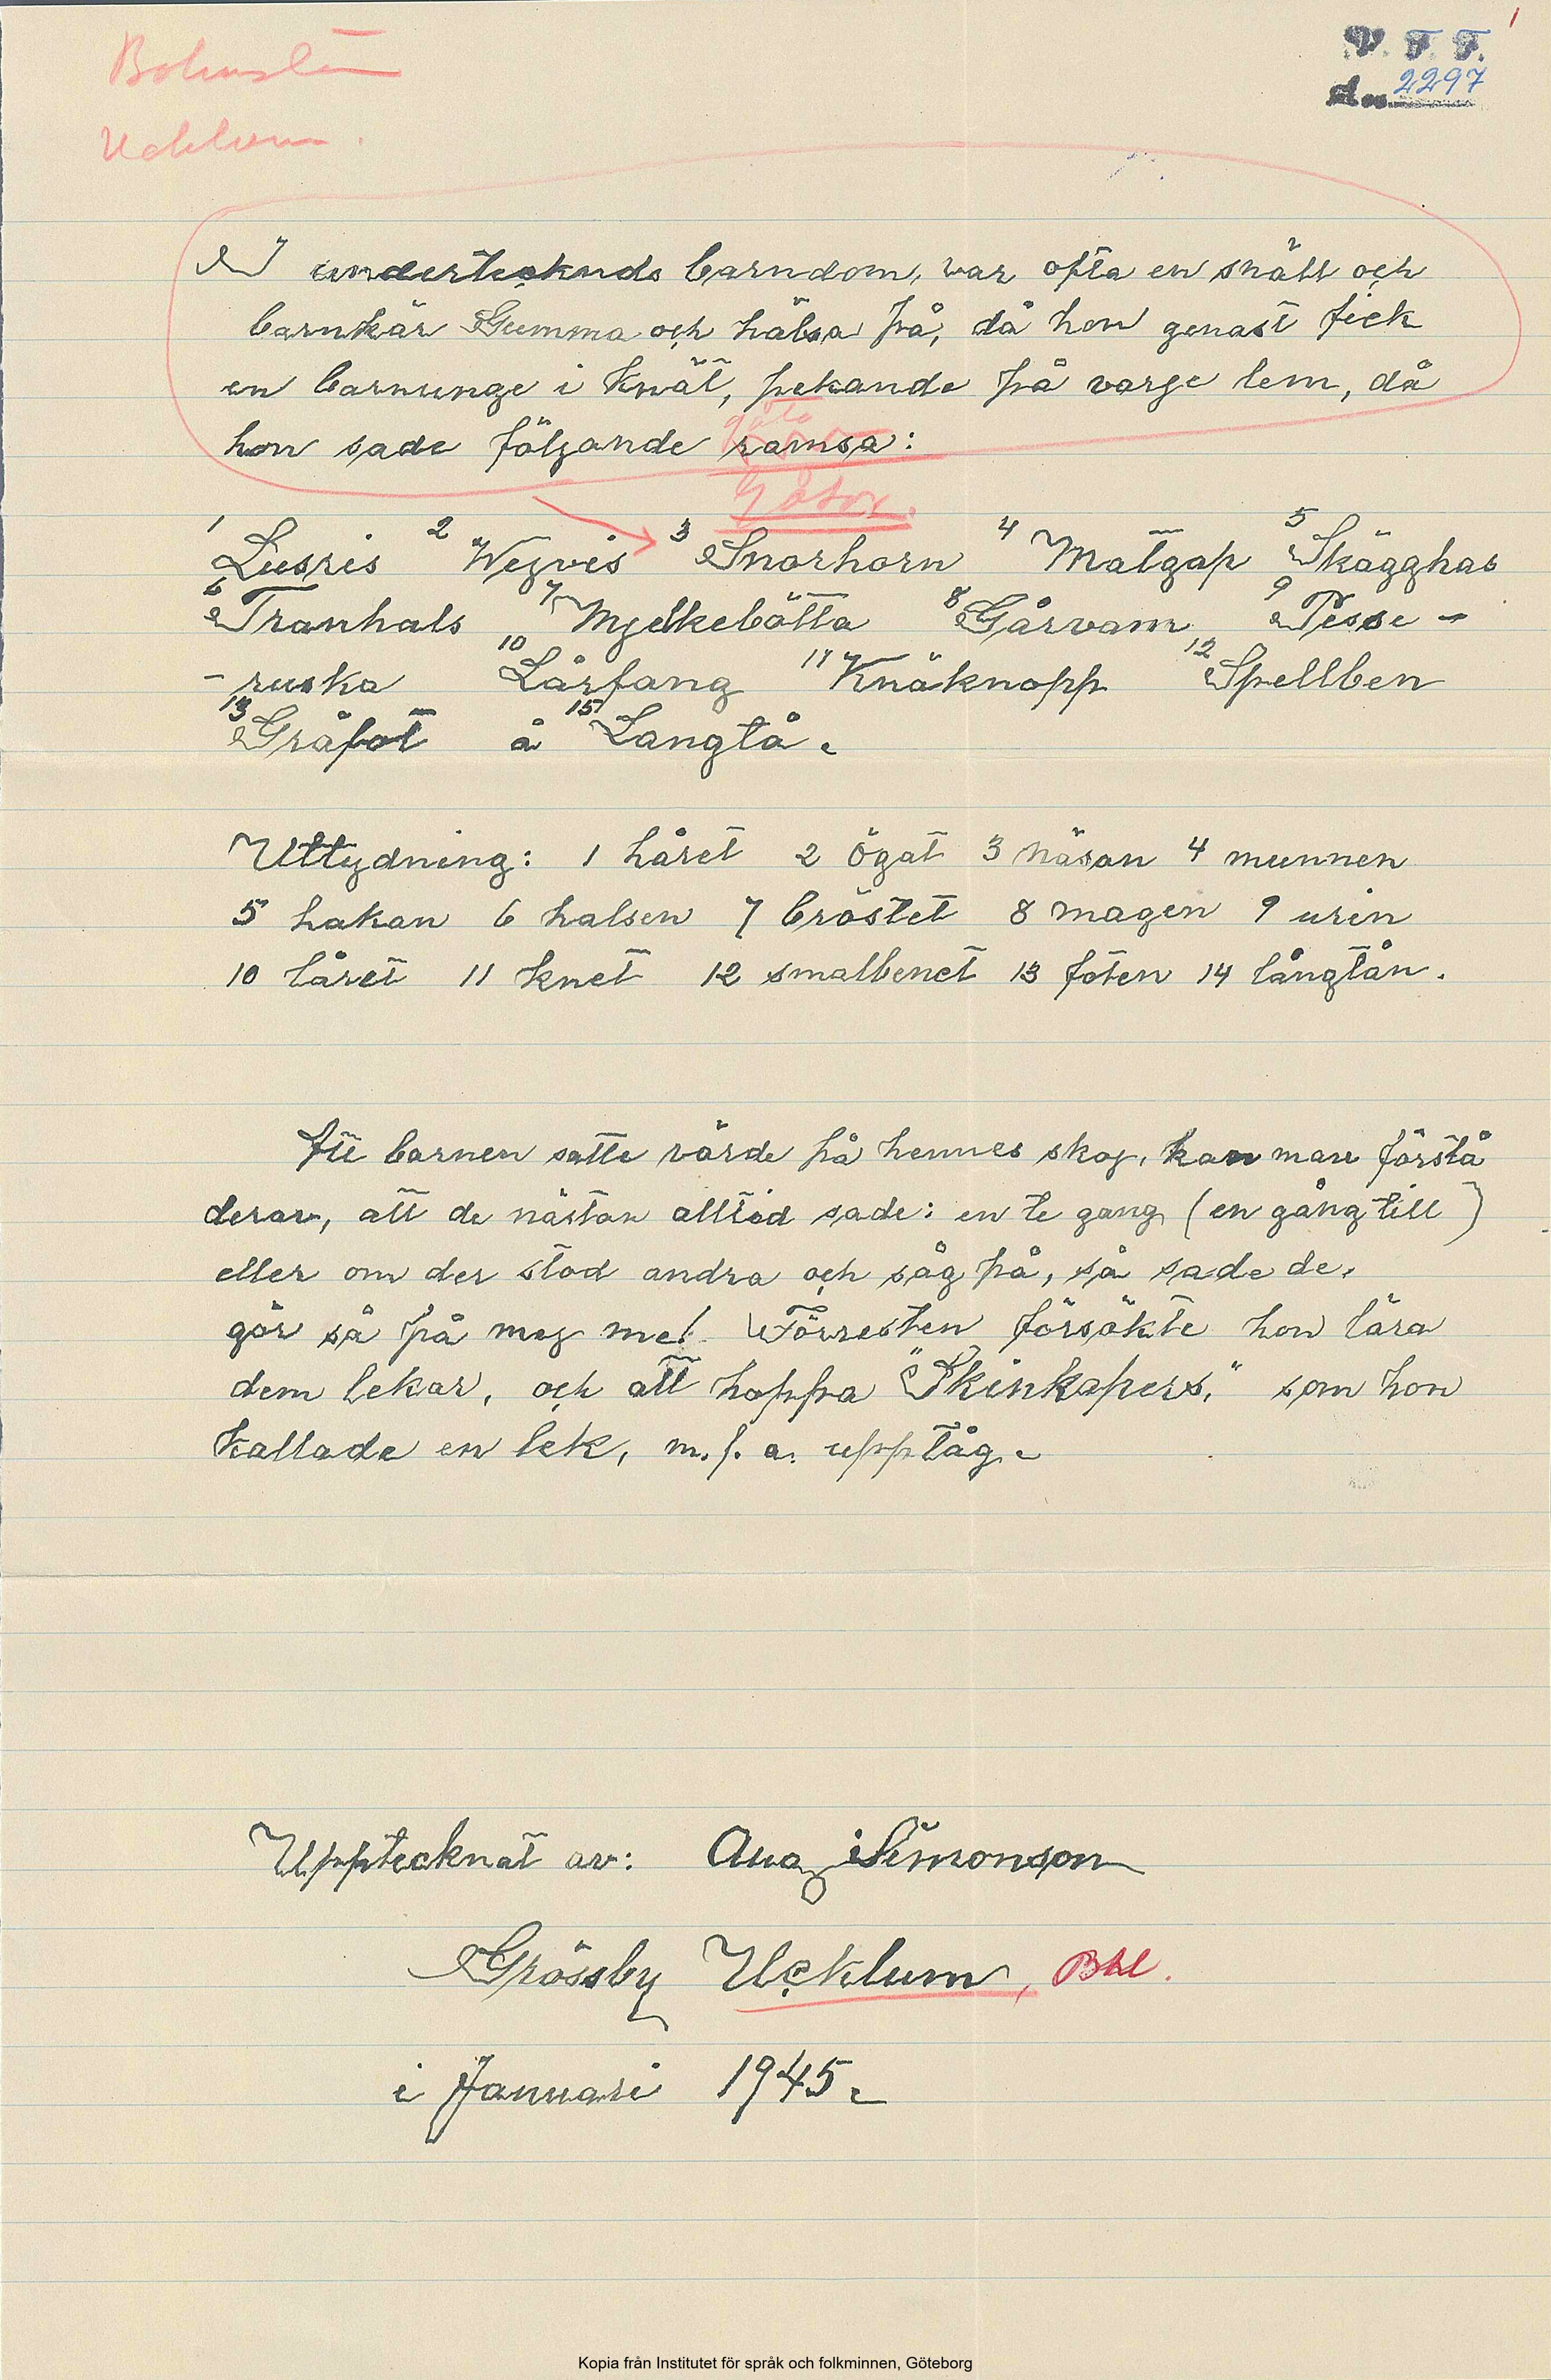 1
Bohuslän
V. F. F.
Acc. 2297
Ucklum.
I undertecknds barndom, var ofta en snäll och
barnkär Gumma och hälsa på, då hon genast fick
en barnunge i Knät, pekande på varge lem, då
hon sade följande ramsa:
gåta
Gåtor.
1 Lusris 2 Wegvis 3 Snorhorn 4 Matgap 5 Skägghas
6 Tranhals 7 Mjelkebötta 8 Gårvam 9 Pesse-
-ruska 10 Lårfang 11 Knäknopp 12 Spellben
13 Gråfot å 15 Langtå.
Uttydning: 1 håret 2 ögat 3 näsan 4 munnen
5 hakan 6 halsen 7 bröstet 8 magen 9 urin
10 låret 11 knet 12 smalbenet 13 foten 14 långtån.
Att barnen satte värde på hennes skoj, kan man förstå
derav, att de nästan alltid sade: en te gang (en gång till)
eller om der stod andra och såg på, så sade de,
gör så på mej me! Förresten försökte hon lära
dem lekar, och att hoppa "Skinkapers," som hon
Kallade en lek, m. f. a. upptåg.
Upptecknat av: Aug Simonson
Grössby Ucklum, Bhl.
i Januari 1945.
Kopia från Institutet för språk och folkminnen, Göteborg